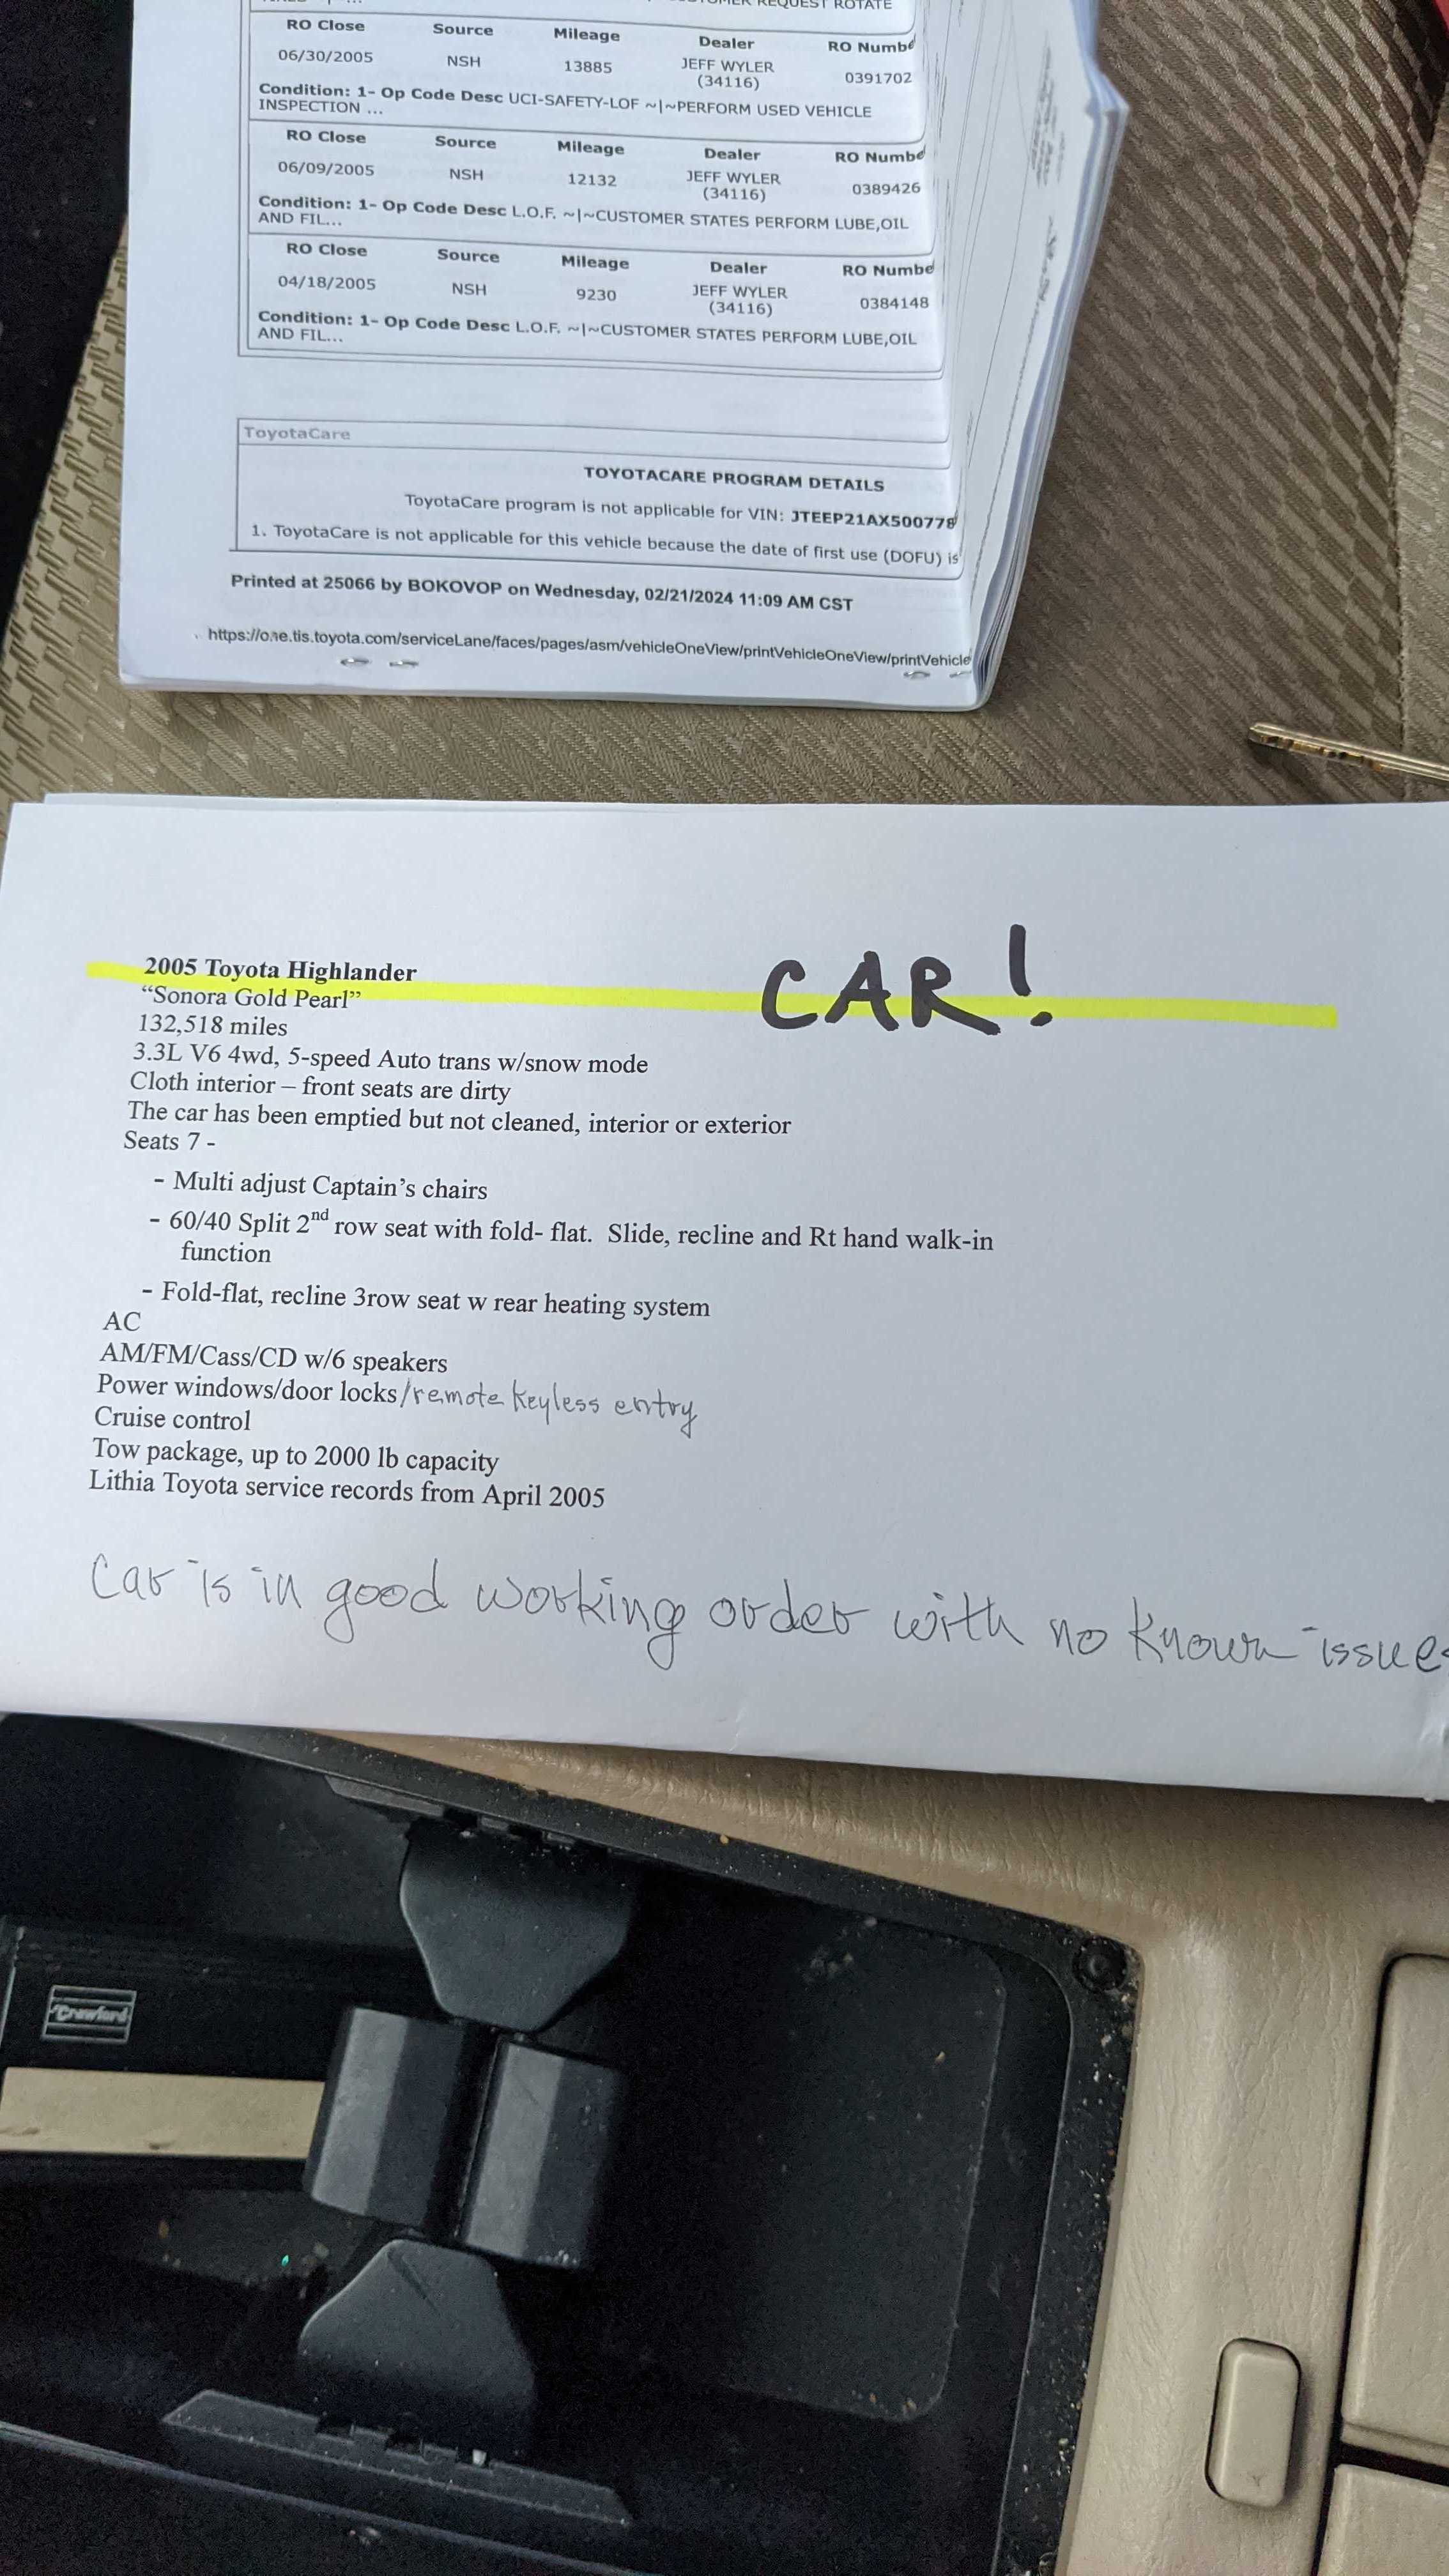 REQUEST ROTATE
RO Close Source Mileage Dealer RO Numbe
06/30/2005 NSH 13885 JEFF WYLER (34116) 0391702
Condition: 1- Op Code Desc UCI-SAFETY-LOF ~|~PERFORM USED VEHICLE
INSPECTION ...
RO Close Source Mileage Dealer RO Numbe
06/09/2005 NSH 12132 JEFF WYLER (34116) 0389426
Condition: 1- Op Code Desc L.O.F. ~|~CUSTOMER STATES PERFORM LUBE,OIL
AND FIL...
RO Close Source Mileage Dealer RO Numbe
04/18/2005 NSH 9230 JEFF WYLER (34116) 0384148
Condition: 1- Op Code Desc L.O.F. ~|~CUSTOMER STATES PERFORM LUBE,OIL
AND FIL...
ToyotaCare
TOYOTACARE PROGRAM DETAILS
ToyotaCare program is not applicable for VIN: JTEEP21AX500778
1. ToyotaCare is not applicable for this vehicle because the date of first use (DOFU) is
Printed at 25066 by BOKOVOP on Wednesday, 02/21/2024 11:09 AM CST
https://one.tis.toyota.com/serviceLane/faces/pages/asm/vehicleOneView/printVehicleOneView/printVehicle
CAR!
2005 Toyota Highlander
“Sonora Gold Pearl”
132,518 miles
3.3L V6 4wd, 5-speed Auto trans w/snow mode
Cloth interior – front seats are dirty
The car has been emptied but not cleaned, interior or exterior
Seats 7 -
- Multi adjust Captain’s chairs
- 60/40 Split 2nd row seat with fold- flat. Slide, recline and Rt hand walk-in
function
- Fold-flat, recline 3row seat w rear heating system
AC
AM/FM/Cass/CD w/6 speakers
Power windows/door locks/remote keyless entry
Cruise control
Tow package, up to 2000 lb capacity
Lithia Toyota service records from April 2005
Car is in good working order with no known issues
Crawford